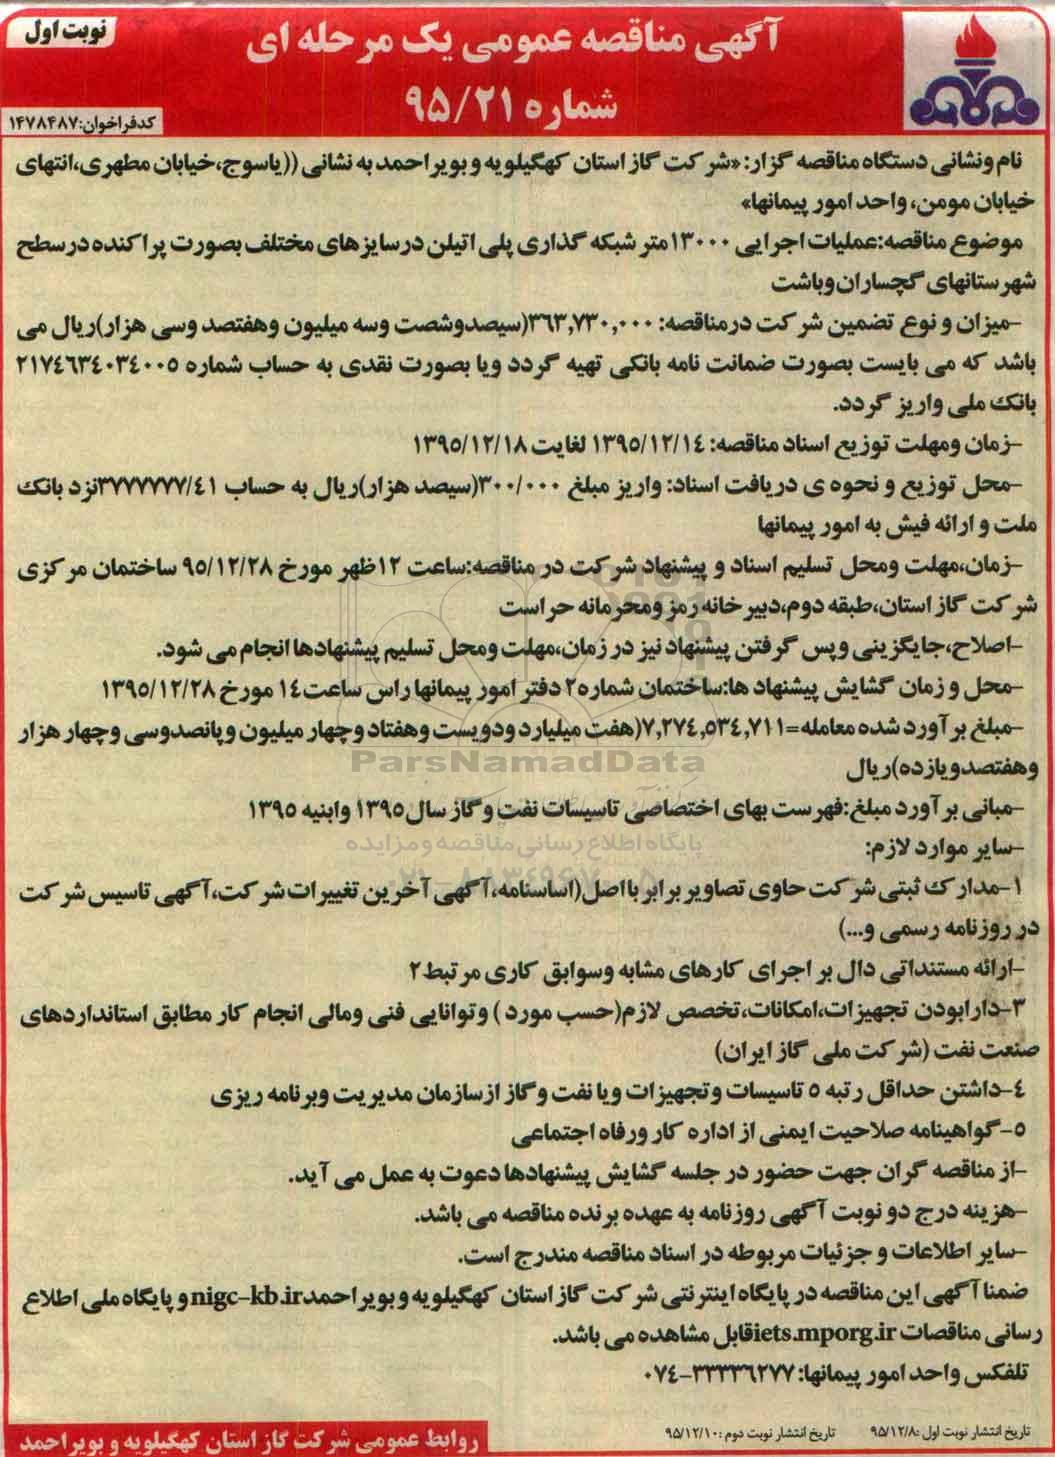 نوبت اول
آگهی مناقصه عمومی یک مرحله ای
شماره ۹۵/۲۱
کدفراخوان:۱۴۷۸۴۸۷
نام ونشانی دستگاه مناقصه گزار: «شرکت گاز استان کهگیلویه و بویراحمد به نشانی ((یاسوج،خیابان مطهری،انتهای
خیابان مومن، واحد امور پیمانها»
موضوع مناقصه:عملیات اجرایی ۱۳۰۰۰متر شبکه گذاری پلی اتیلن درسایزهای مختلف بصورت پراکنده درسطح
شهرستانهای گچساران وباشت
-میزان و نوع تضمین شرکت درمناقصه: ۳۶۳,۷۳۰,۰۰۰(سیصدوشصت وسه میلیون وهفتصد وسی هزار)ریال می
باشد که می بایست بصورت ضمانت نامه بانکی تهیه گردد ویا بصورت نقدی به حساب شماره ۲۱۷٤٦۳٤۰۳٤۰۰۵
بانک ملی واریز گردد.
-زمان ومهلت توزیع اسناد مناقصه: ۱۳۹۵/۱۲/۱٤ لغایت ۱۳۹۵/۱۲/۱۸
-محل توزیع و نحوه ی دریافت اسناد: واریز مبلغ ۳۰۰/۰۰۰(سیصد هزار)ریال به حساب ۳۷۷۷۷۷۷/٤۱نزد بانک
ملت و ارائه فیش به امور پیمانها
-زمان،مهلت ومحل تسلیم اسناد و پیشنهاد شرکت در مناقصه:ساعت ۱۲ظهر مورخ ۹۵/۱۲/۲۸ ساختمان مرکزی
شرکت گاز استان،طبقه دوم،دبیرخانه رمز ومحرمانه حراست
-اصلاح،جایگزینی وپس گرفتن پیشنهاد نیز در زمان،مهلت ومحل تسلیم پیشنهادها انجام می شود.
-محل و زمان گشایش پیشنهاد ها:ساختمان شماره۲ دفتر امور پیمانها راس ساعت۱٤ مورخ ۱۳۹۵/۱۲/۲۸
-مبلغ برآورد شده معامله=۷,۲۷٤,۵۳٤,۷۱۱(هفت میلیارد ودویست وهفتاد وچهار میلیون وپانصدوسی وچهار هزار
وهفتصدویازده)ریال
ParsNamadData
-مبانی برآورد مبلغ:فهرست بهای اختصاصی تاسیسات نفت وگاز سال۱۳۹۵ وابنیه ۱۳۹۵
پایگاه اطلاع رسانی مناقصه و مزایده
-سایر موارد لازم:
۱-مدارک ثبتی شرکت حاوی تصاویر برابر بااصل(اساسنامه،آگهی آخرین تغییرات شرکت،آگهی تاسیس شرکت
در روزنامه رسمی و...)
-ارائه مستنداتی دال بر اجرای کارهای مشابه وسوابق کاری مرتبط۲
۳-دارابودن تجهیزات،امکانات،تخصص لازم(حسب مورد ) وتوانایی فنی ومالی انجام کار مطابق استانداردهای
صنعت نفت (شرکت ملی گاز ایران)
٤-داشتن حداقل رتبه ۵ تاسیسات وتجهیزات ویا نفت وگاز ازسازمان مدیریت وبرنامه ریزی
۵-گواهینامه صلاحیت ایمنی از اداره کار ورفاه اجتماعی
-از مناقصه گران جهت حضور در جلسه گشایش پیشنهادها دعوت به عمل می آید.
-هزینه درج دو نوبت آگهی روزنامه به عهده برنده مناقصه می باشد.
-سایر اطلاعات و جزئیات مربوطه در اسناد مناقصه مندرج است.
ضمنا آگهی این مناقصه در پایگاه اینترنتی شرکت گاز استان کهگیلویه و بویراحمدnigc-kb.ir و پایگاه ملی اطلاع
رسانی مناقصات iets.mporg.irقابل مشاهده می باشد.
تلفکس واحد امور پیمانها: ۳۳۳۳٦۲۷۷-۰۷٤
تاریخ انتشار نوبت اول :۹۵/۱۲/۸ تاریخ انتشار نوبت دوم :۹۵/۱۲/۱۰
روابط عمومی شرکت گاز استان کهگیلویه و بویراحمد